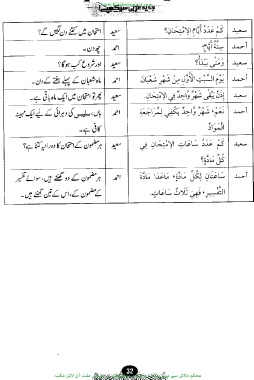 سعيد كَمْ عَدَدُ أَيَّامِ الاِمْتِحَانِ؟ سعید امتحان میں کتنے دن لگیں گے؟
أحمد سِتَّةُ أَيَّامٍ. احمد چھ دن۔
سعيد وَمَتَى يَبْدَأُ؟ سعید اور شروع کب ہوگا؟
أحمد يَوْمَ السَّبْتِ الأَوَّلِ مِنْ شَهْرِ شَعْبَانَ احمد ماہ شعبان کے پہلے ہفتے کے دن۔
سعيد إِذَنْ يَبْقَى شَهْرٌ وَاحِدٌ فِي الاِمْتِحَانِ. سعید پھر تو امتحان میں ایک ماہ باقی ہے۔
أحمد نَعَمْ، شَهْرٌ وَاحِدٌ يَكْفِي لِمُرَاجَعَةِ احمد ہاں، کی دہرائی کے لیے ایک مہینہ
الْمَوَادِّ کافی ہے۔
سعيد كَمْ عَدَدُ سَاعَاتِ الاِمْتِحَانِ فِي سعید ہر مضمون کے امتحان کا دورانیہ کتنا ہے؟
كُلِّ مَادَّةٍ؟
أحمد سَاعَتَانِ لِكُلِّ مَادَّةٍ، مَاعَدَا مَادَّةَ احمد ہر مضمون کے دو گھنٹے ہیں، سوائے تفسیر
التَّفْسِيرِ، فَفِيهَا ثَلَاثُ سَاعَاتٍ. کے مضمون کے، اس کے تین گھنٹے ہیں۔
32
محکم دلائل سے مفت آن لائن مکتبہ